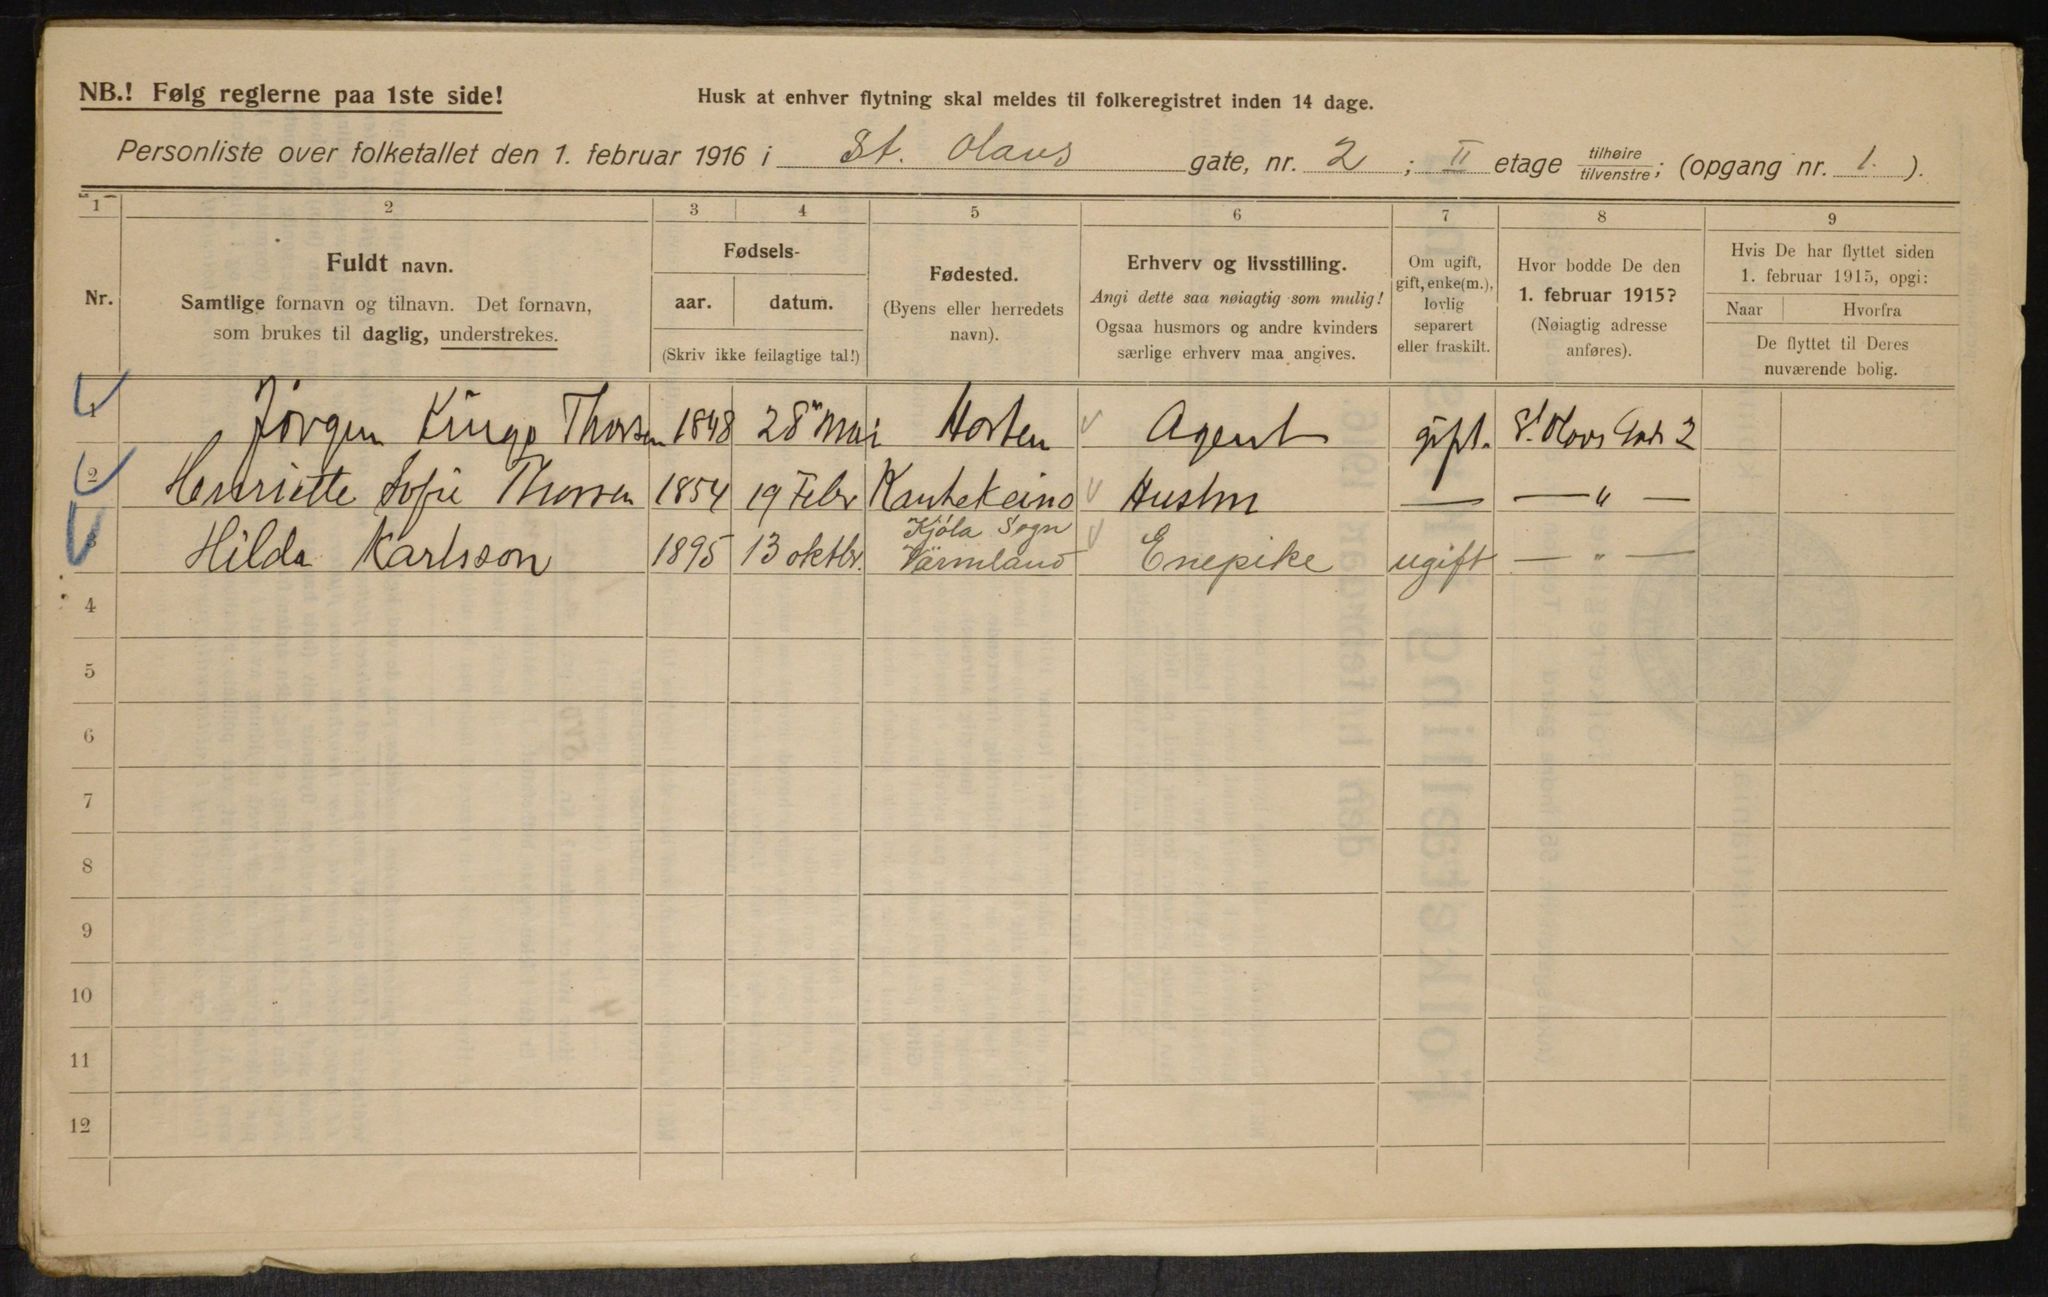 NB.! Følg reglerne paa 1ste side!
Husk at enhver flytning skal meldes til folkeregistret inden 14 dage.
Personliste over folketallet den 1. februar 1916 i St. Olavs gate, nr. 2 ; II etage tilhøire/tilvenstre; (opgang nr. 1. ).
1 2 3 4 5 6 7 8 9
Nr.
Fuldt navn.
Samtlige fornavn og tilnavn. Det fornavn,
som brukes til daglig, understrekes.
Fødsels-
aar. datum.
(Skriv ikke feilagtige tal!)
Fødested.
(Byens eller herredets
navn).
Erhverv og livsstilling.
Angi dette saa nøiagtig som mulig!
Ogsaa husmors og andre kvinders
særlige erhverv maa angives.
Om ugift,
gift, enke(m.),
lovlig
separert
eller fraskilt.
Hvor bodde De den
1. februar 1915?
(Nøiagtig adresse
anføres).
Hvis De har flyttet siden
1. februar 1915, opgi:
Naar Hvorfra
De flyttet til Deres
nuværende bolig.
1 Jörgen Kingo Thorsen 1848 28 Mai Horten Agent gift. St. Olavs Gade 2
2 Henriette Sofie Thorsen 1854 19 Febr Kautokeino Hustru — — " —
3 Hilda Karlsson 1895 13 oktbr. Kjöla Sogn Värmland Enepike ugift — " —
4
5
6
7
8
9
10
11
12